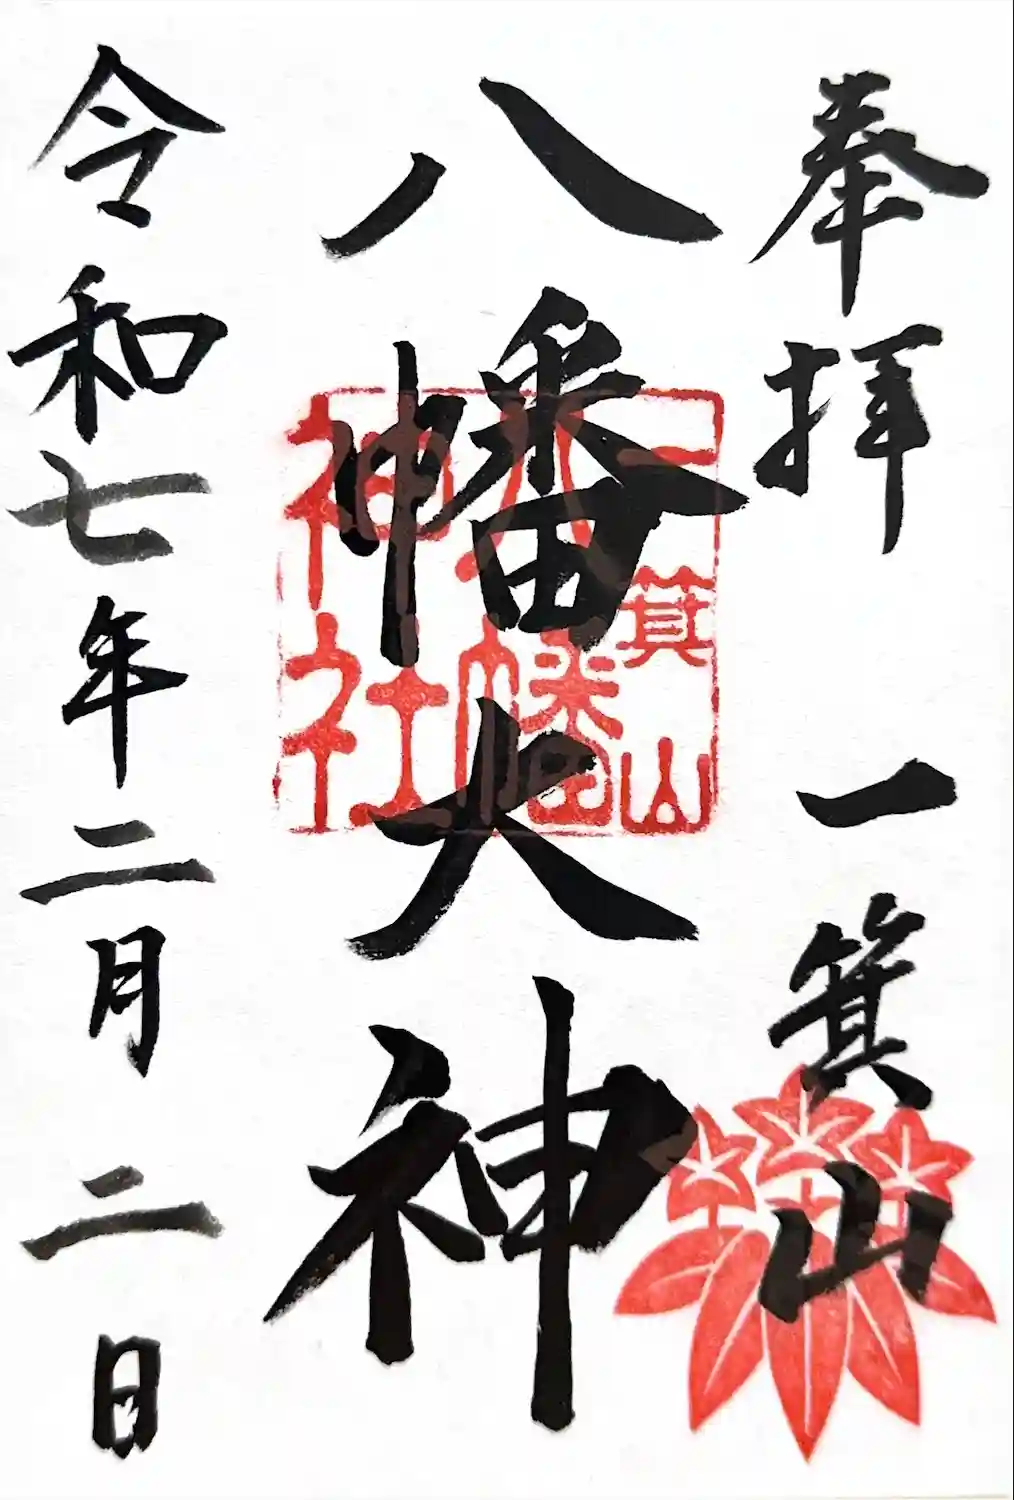 奉拝 一箕山
八幡大神
一箕山
八幡
神社
令和七年二月二日